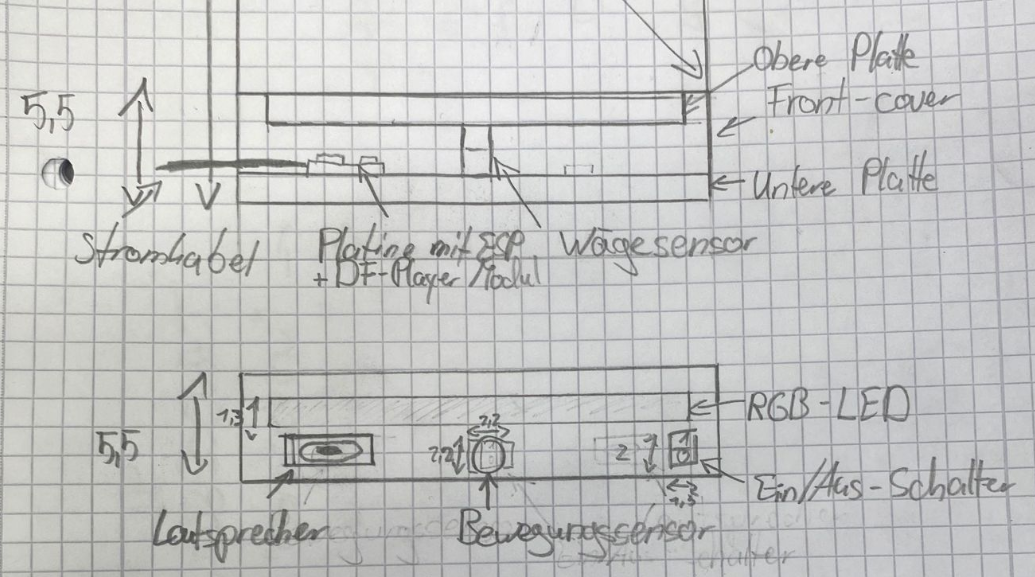 Obere Platte
Front-cover
5,5
Untere Platte
Stromkabel
Platine mit ESP
+ DF-Player Modul
Wägesensor
1,3
RGB-LED
5,5
2,2
2,2
2
1,3
Ein/Aus-Schalter
Lautsprecher
Bewegungssensor